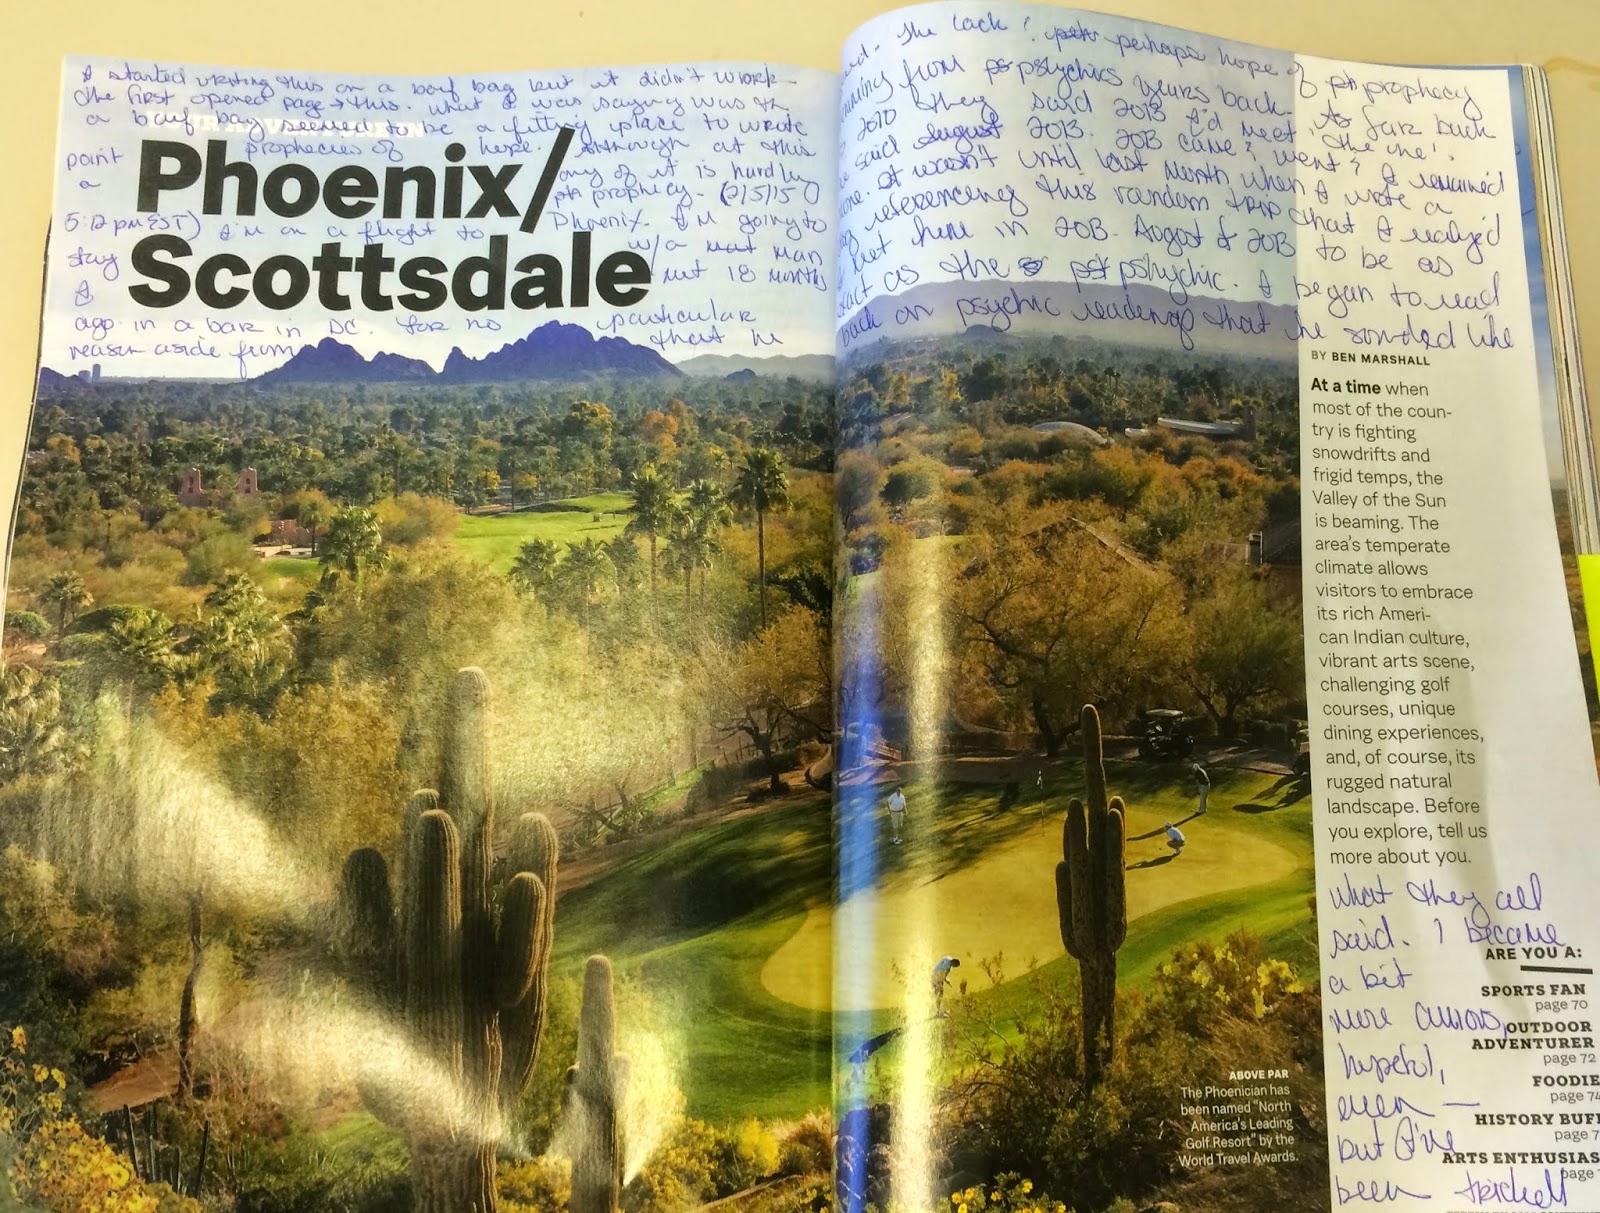 I started writing this on a barf bag but it didn't work -
the first opened page → this. What I was saying was th
a barf bag seemed to be a fitting place to wrote
YOUR ADVENTURE IN
prophecies of hope. Although at this
point any of it is hardly
a prophecy. (2/5/15
5:12 pm EST) I'm on a flight to Phoenix. I'm going to
stay w/a man
I met 18 months
ago in a bar in DC. For no particular
reason aside from that he
Phoenix/
Scottsdale
The lack & perhaps hope of prophecy
from psychics years back. As far back
2010 they said 2013 I'd meet 'the one'.
said August 2013. 2013 came & went & I remained
. It wasn't until last month when I wrote a
referencing this random trip that I realized
met him in 2013. August & 2013 to be as
exact as the pshychic. I began to read
back on psychic readings that he sounded like
BY BEN MARSHALL
At a time when
most of the coun-
try is fighting
snowdrifts and
frigid temps, the
Valley of the Sun
is beaming. The
area's temperate
climate allows
visitors to embrace
its rich Ameri-
can Indian culture,
vibrant arts scene,
challenging golf
courses, unique
dining experiences,
and, of course, its
rugged natural
landscape. Before
you explore, tell us
more about you.
what they all
said. I became
a bit
more curious,
hopeful,
even —
but I've
been tricked
ARE YOU A:
SPORTS FAN
page 70
OUTDOOR
ADVENTURER
page 72
FOODIE
page 74
HISTORY BUFF
page 7
ARTS ENTHUSIAS
page
ABOVE PAR
The Phoenician has
been named "North
America's Leading
Golf Resort" by the
World Travel Awards.